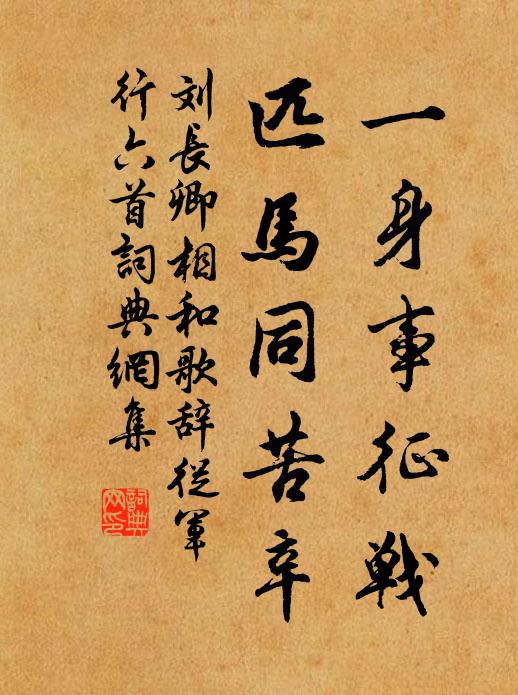 一身事征戰
匹馬同苦辛
刘長卿相和歌辞從軍
行六首詞典網集
詞典网印